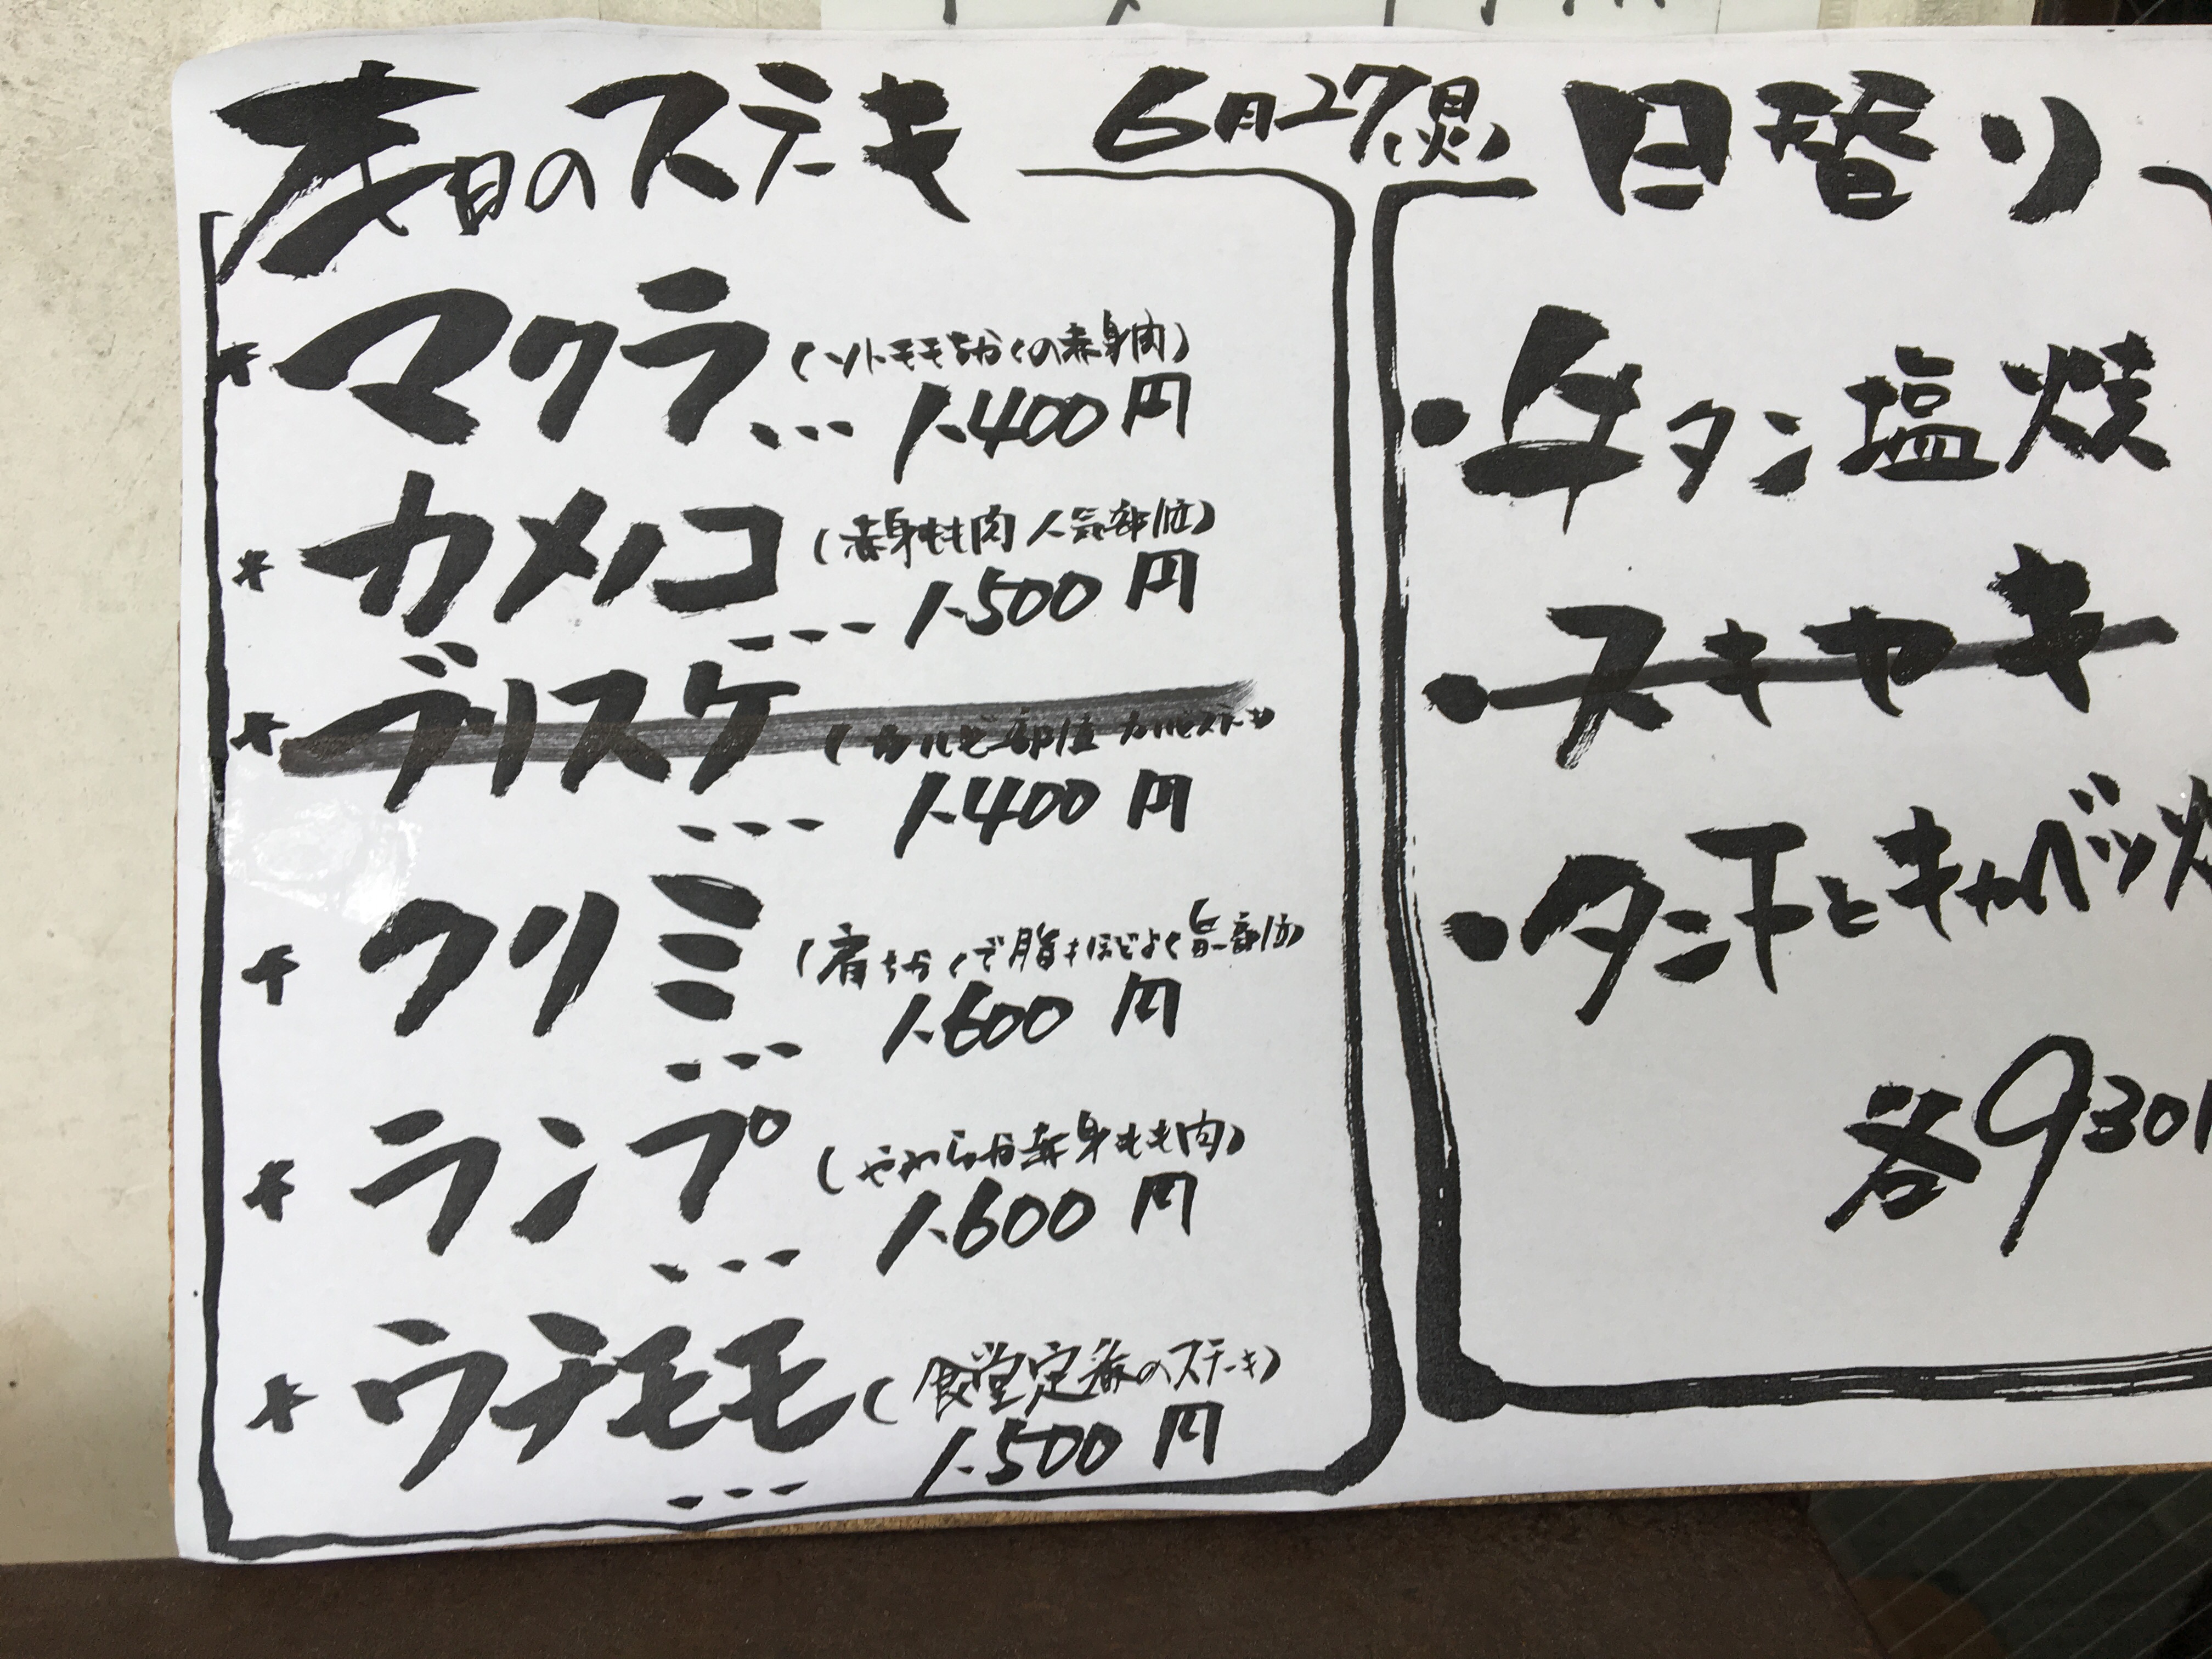 本日のステーキ
6月27日(火)
* マクラ (ソトモモちかくの赤身肉)
... 1.400円
* カメノコ (赤身もも肉 人気部位)
... 1.500円
* ブリスケ (カルビ部位 カルビステーキ
... 1.400円
* クリミ (肩ちかくで脂もほどよく旨い部位)
... 1.600円
* ランプ (やわらか赤身もも肉)
... 1.600円
* ウチモモ (食堂定番のステーキ)
... 1.500円
日替り
・牛タン塩焼
・スキヤキ
・タン下とキャベツ
各930